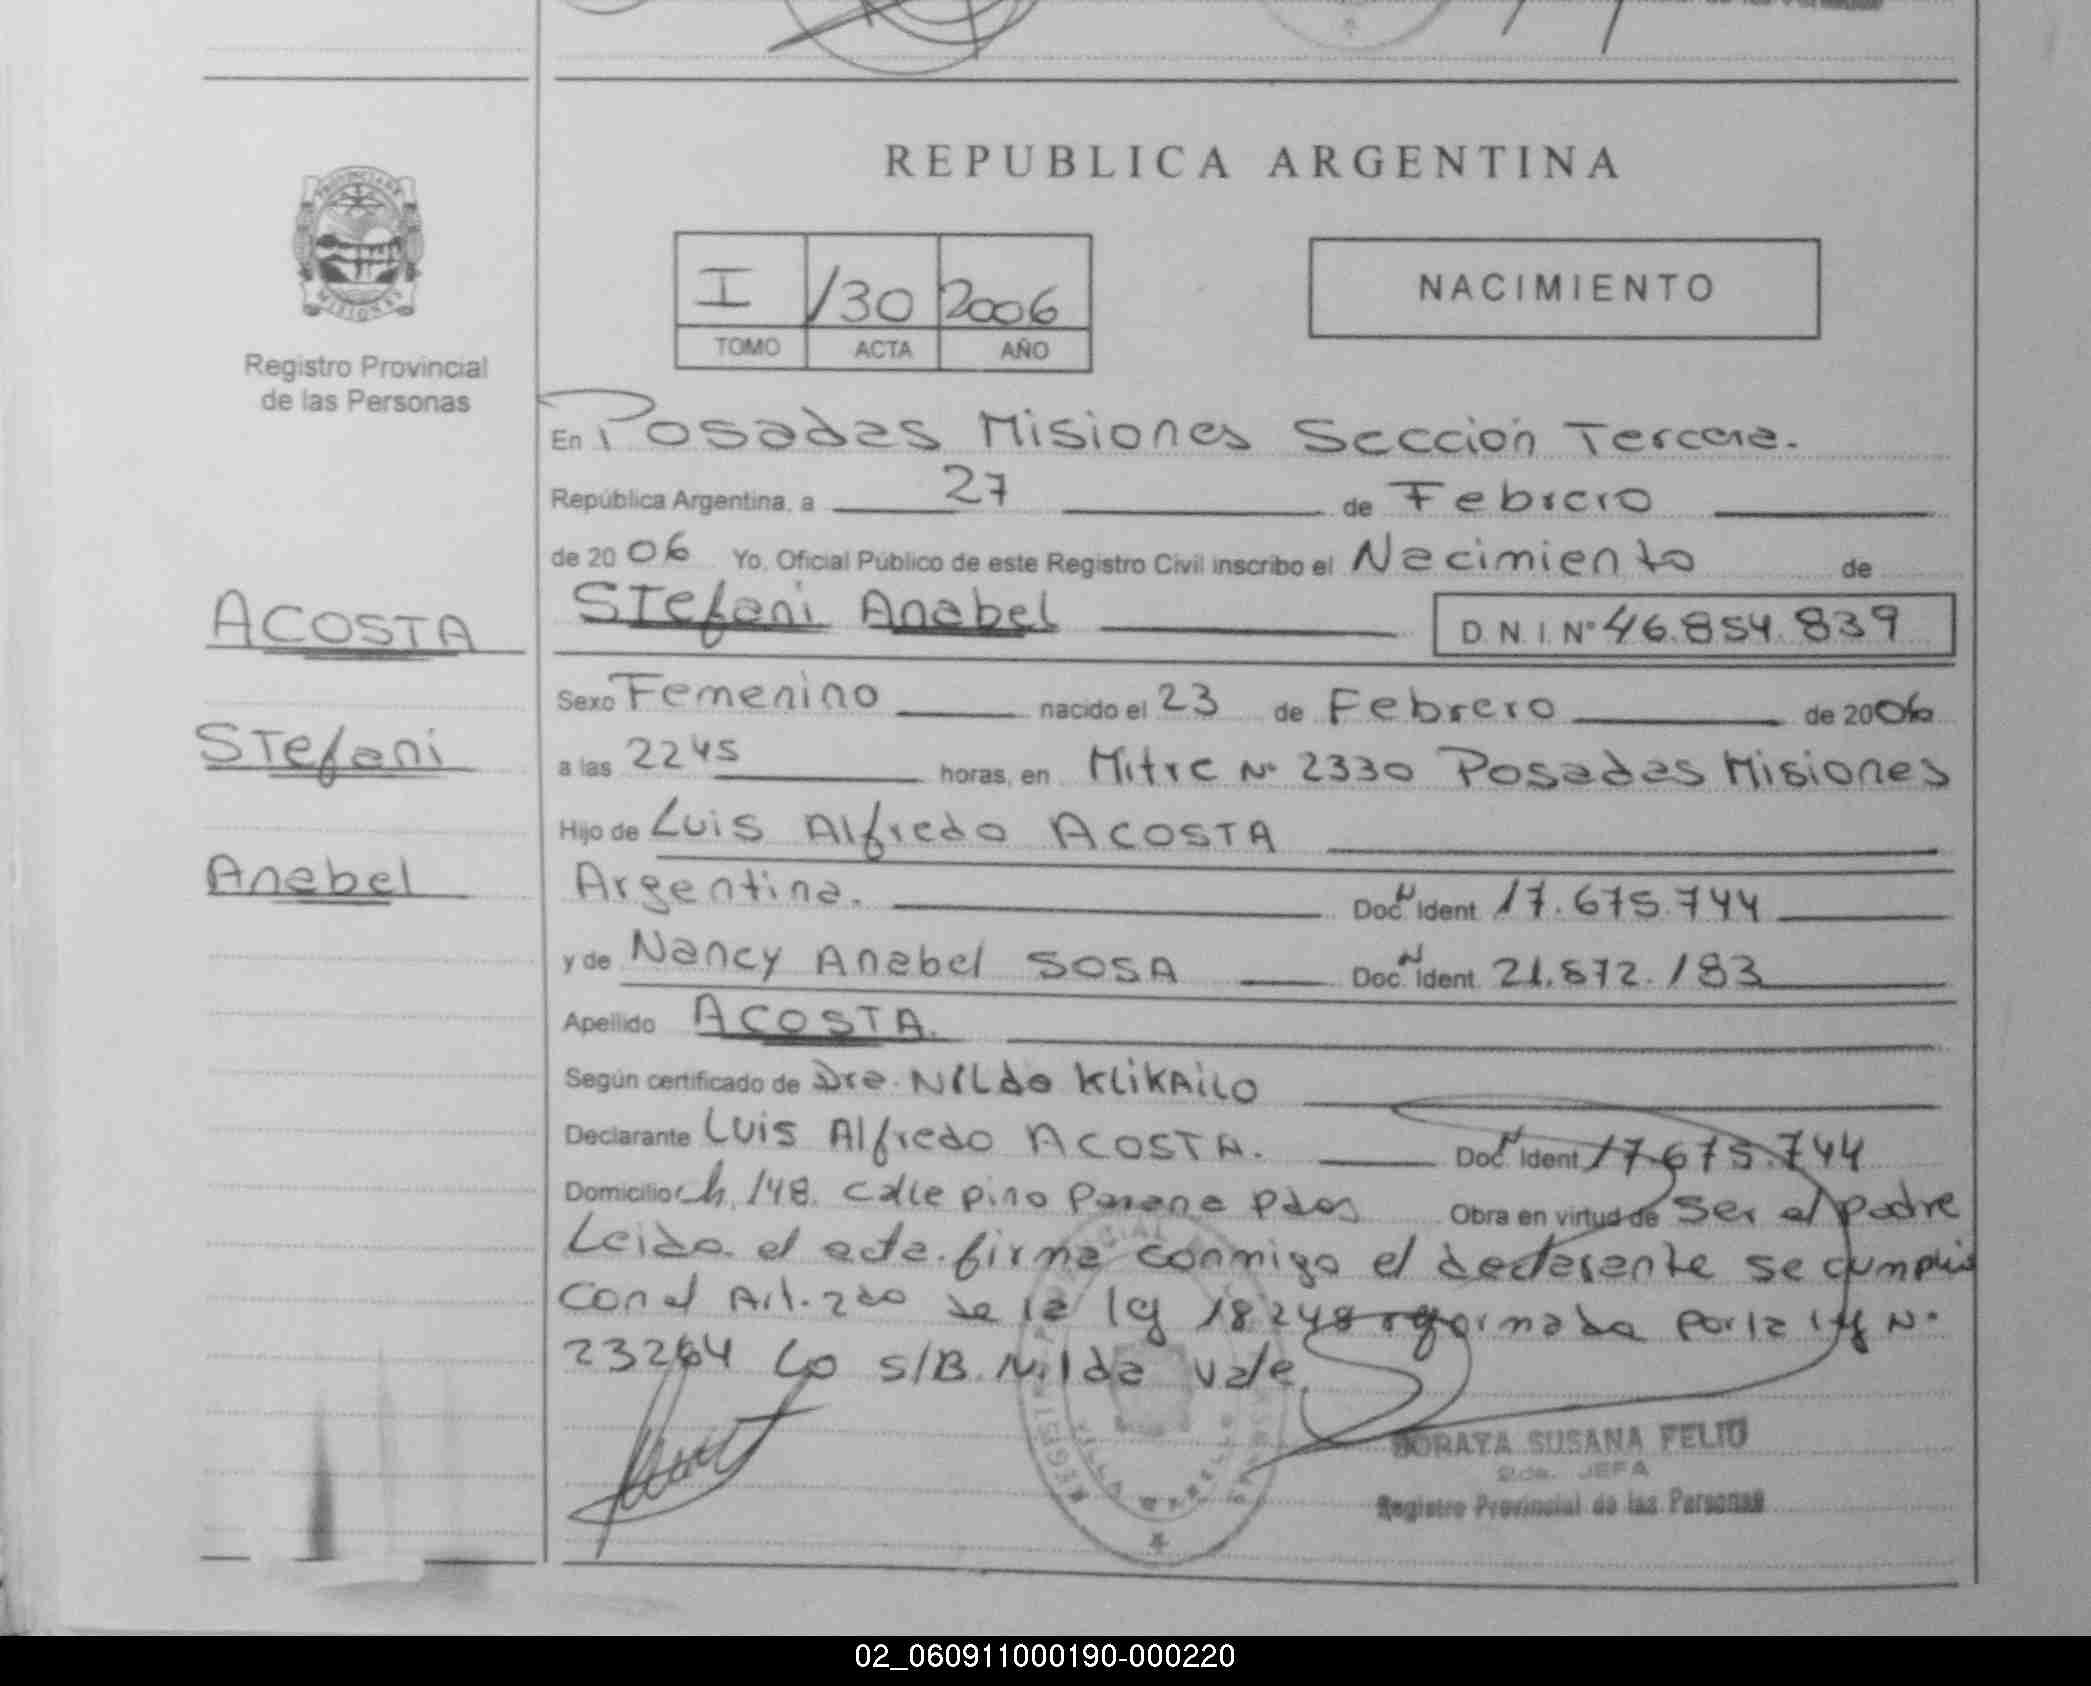 REPUBLICA ARGENTINA
PROVINCIA DE
MISIONES
Registro Provincial
de las Personas
I /30 2006
TOMO ACTA AÑO
NACIMIENTO
En Posadas Misiones Sección Tercera.
República Argentina, a 27 de Febrero
de 2006 Yo, Oficial Público de este Registro Civil inscribo el Nacimiento de
Stefani Anabel D.N.I. Nº 46.854.839
ACOSTA
Stefani
Anabel
Sexo Femenino nacido el 23 de Febrero de 2006
a las 2245 horas, en Mitre Nº 2330 Posadas Misiones
Hijo de Luis Alfredo ACOSTA
Argentina. Doc. N Ident 17.675.744
y de Nancy Anabel SOSA Doc. N Ident. 21.872.183
Apellido ACOSTA.
Según certificado de Dra. Nilda KLIKAILO
Declarante Luis Alfredo ACOSTA. Doc. N Ident 17.675.744
Domicilio Ch. 148. Calle pino Parana Pdas Obra en virtud de Ser el padre
Leida el acta firma conmigo el declarante se cumplio
con el Art. 2do de la ley 18248 reformada por la ley Nº
23264 Lo S/B. Nilda Vale
SORAYA SUSANA FELIU
2da. JEFA
Registro Provincial de las Personas
02_060911000190-000220